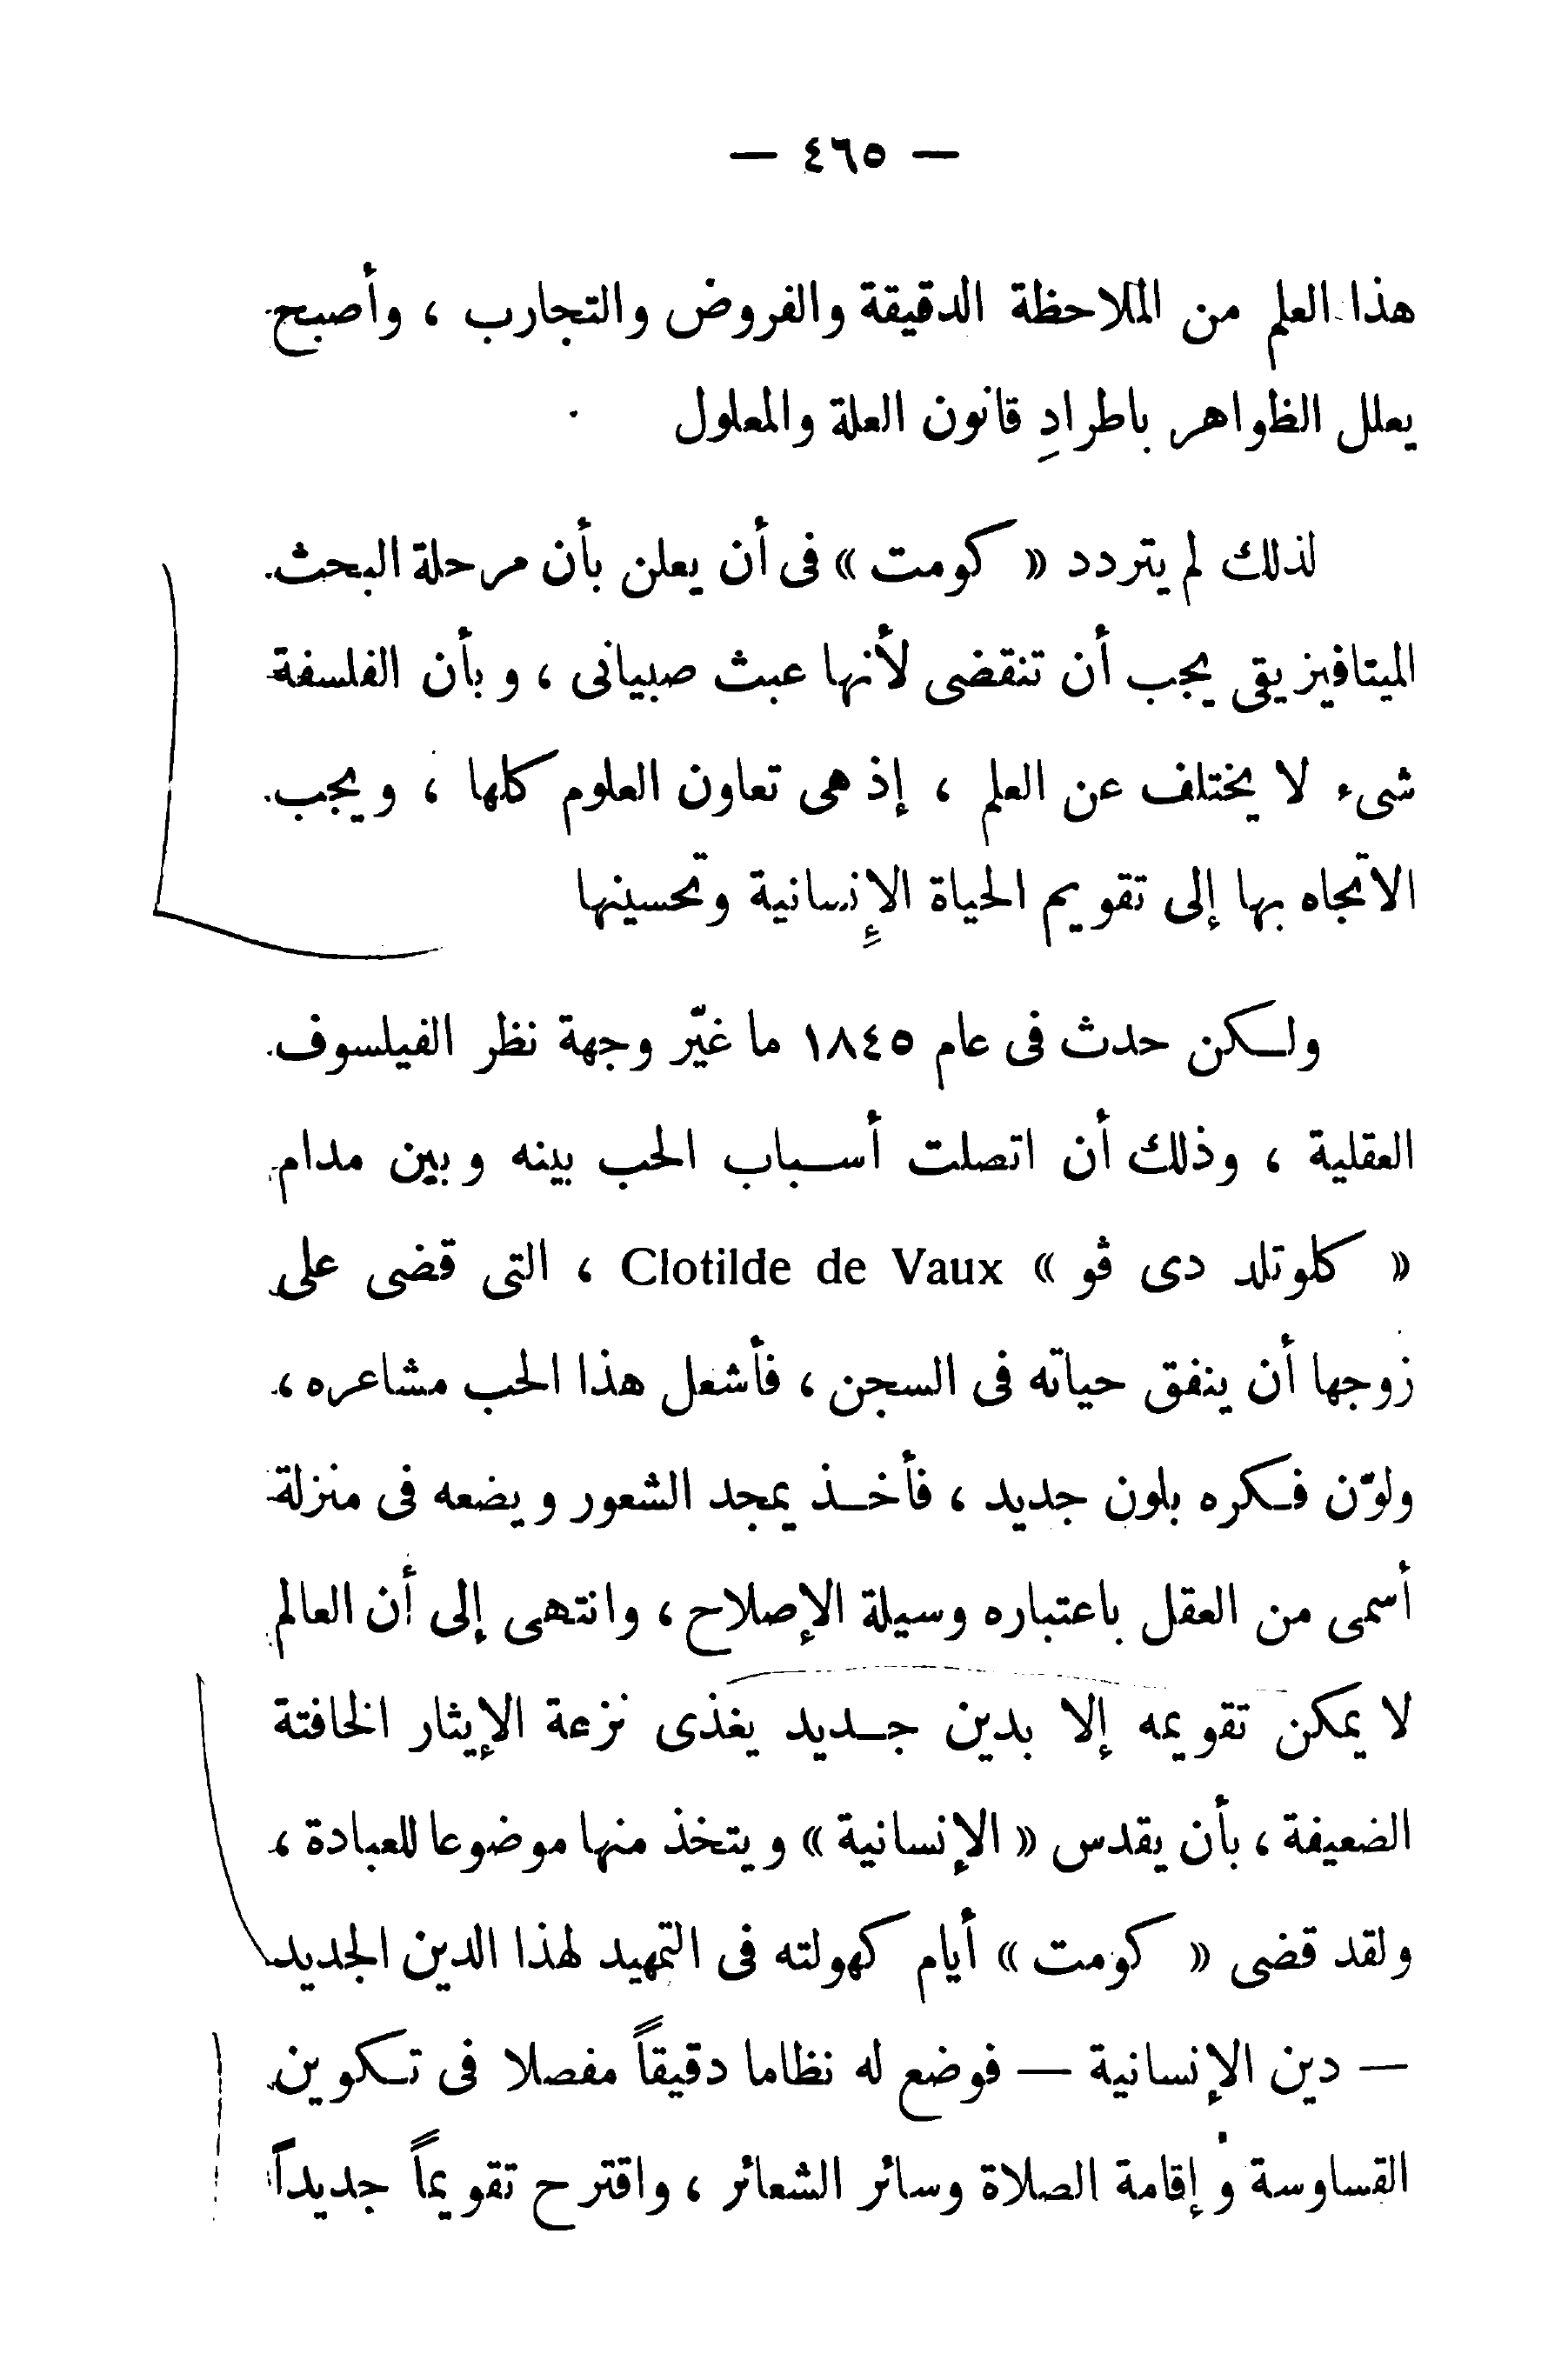 — ٤٦٥ —
هذا العلم من الملاحظة الدقيقة والفروض والتجارب ، وأصبح
يعلل الظواهر باطرادِ قانون العلة والمعلول
لذلك لم يتردد « كومت » فى أن يعلن بأن مرحلة البحث
الميتافيزيقى يجب أن تنقضى لأنها عبث صبيانى ، وبأن الفلسفة
شىء لا يختلف عن العلم ، إذ هى تعاون العلوم كلها ، ويجب
الاتجاه بها إلى تقويم الحياة الإنسانية وتحسينها
ولكن حدث فى عام ١٨٤٥ ما غيّر وجهة نظر الفيلسوف
العقلية ، وذلك أن اتصلت أسباب الحب بينه وبين مدام
« كلوتلد دى ڤو » Clotilde de Vaux ، التى قضى على
زوجها أن ينفق حياته فى السجن ، فأشعل هذا الحب مشاعره ،
ولوّن فكره بلون جديد ، فأخذ يمجد الشعور ويضعه فى منزلة
أسمى من العقل باعتباره وسيلة الإصلاح ، وانتهى إلى أن العالم
لا يمكن تقويمه إلا بدين جديد يغذى نزعة الإيثار الخافتة
الضعيفة ، بأن يقدس « الإنسانية » ويتخذ منها موضوعا للعبادة ،
ولقد قضى « كومت » أيام كهولته فى التمهيد لهذا الدين الجديد
— دين الإنسانية — فوضع له نظاما دقيقاً مفصلا فى تكوين
القساوسة وإقامة الصلاة وسائر الشعائر ، واقترح تقويماً جديداً